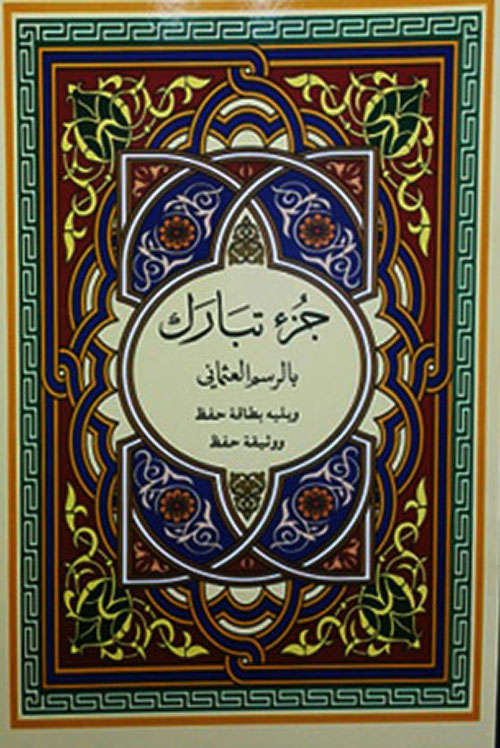 جزء تبارك
بالرسم العثماني
ويليه بطاقة حفظ
ووثيقة حفظ